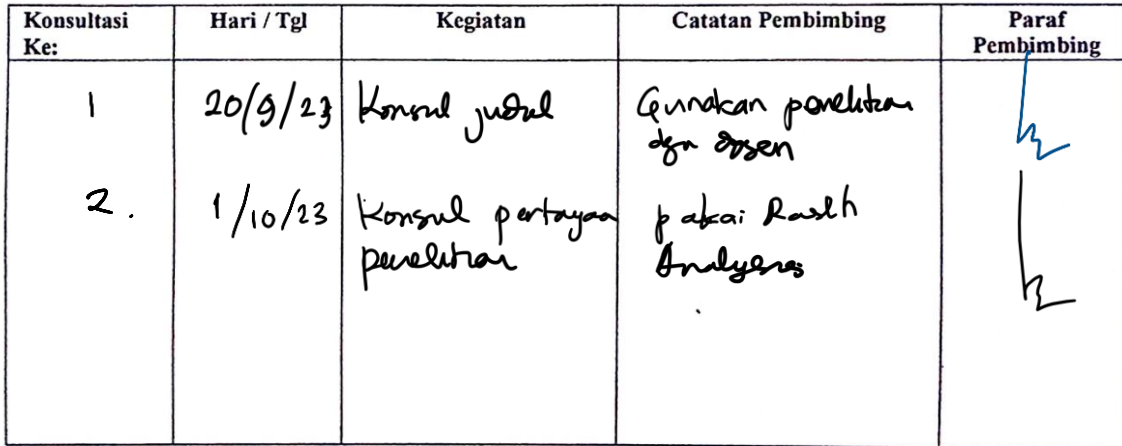 Konsultasi Ke: Hari / Tgl Kegiatan Catatan Pembimbing Paraf Pembimbing
1 20/9/23 Konsul judul Gunakan penelitian
dgn dosen
2. 1/10/23 Konsul pertayaan pakai Rasch
penelitian Analyses